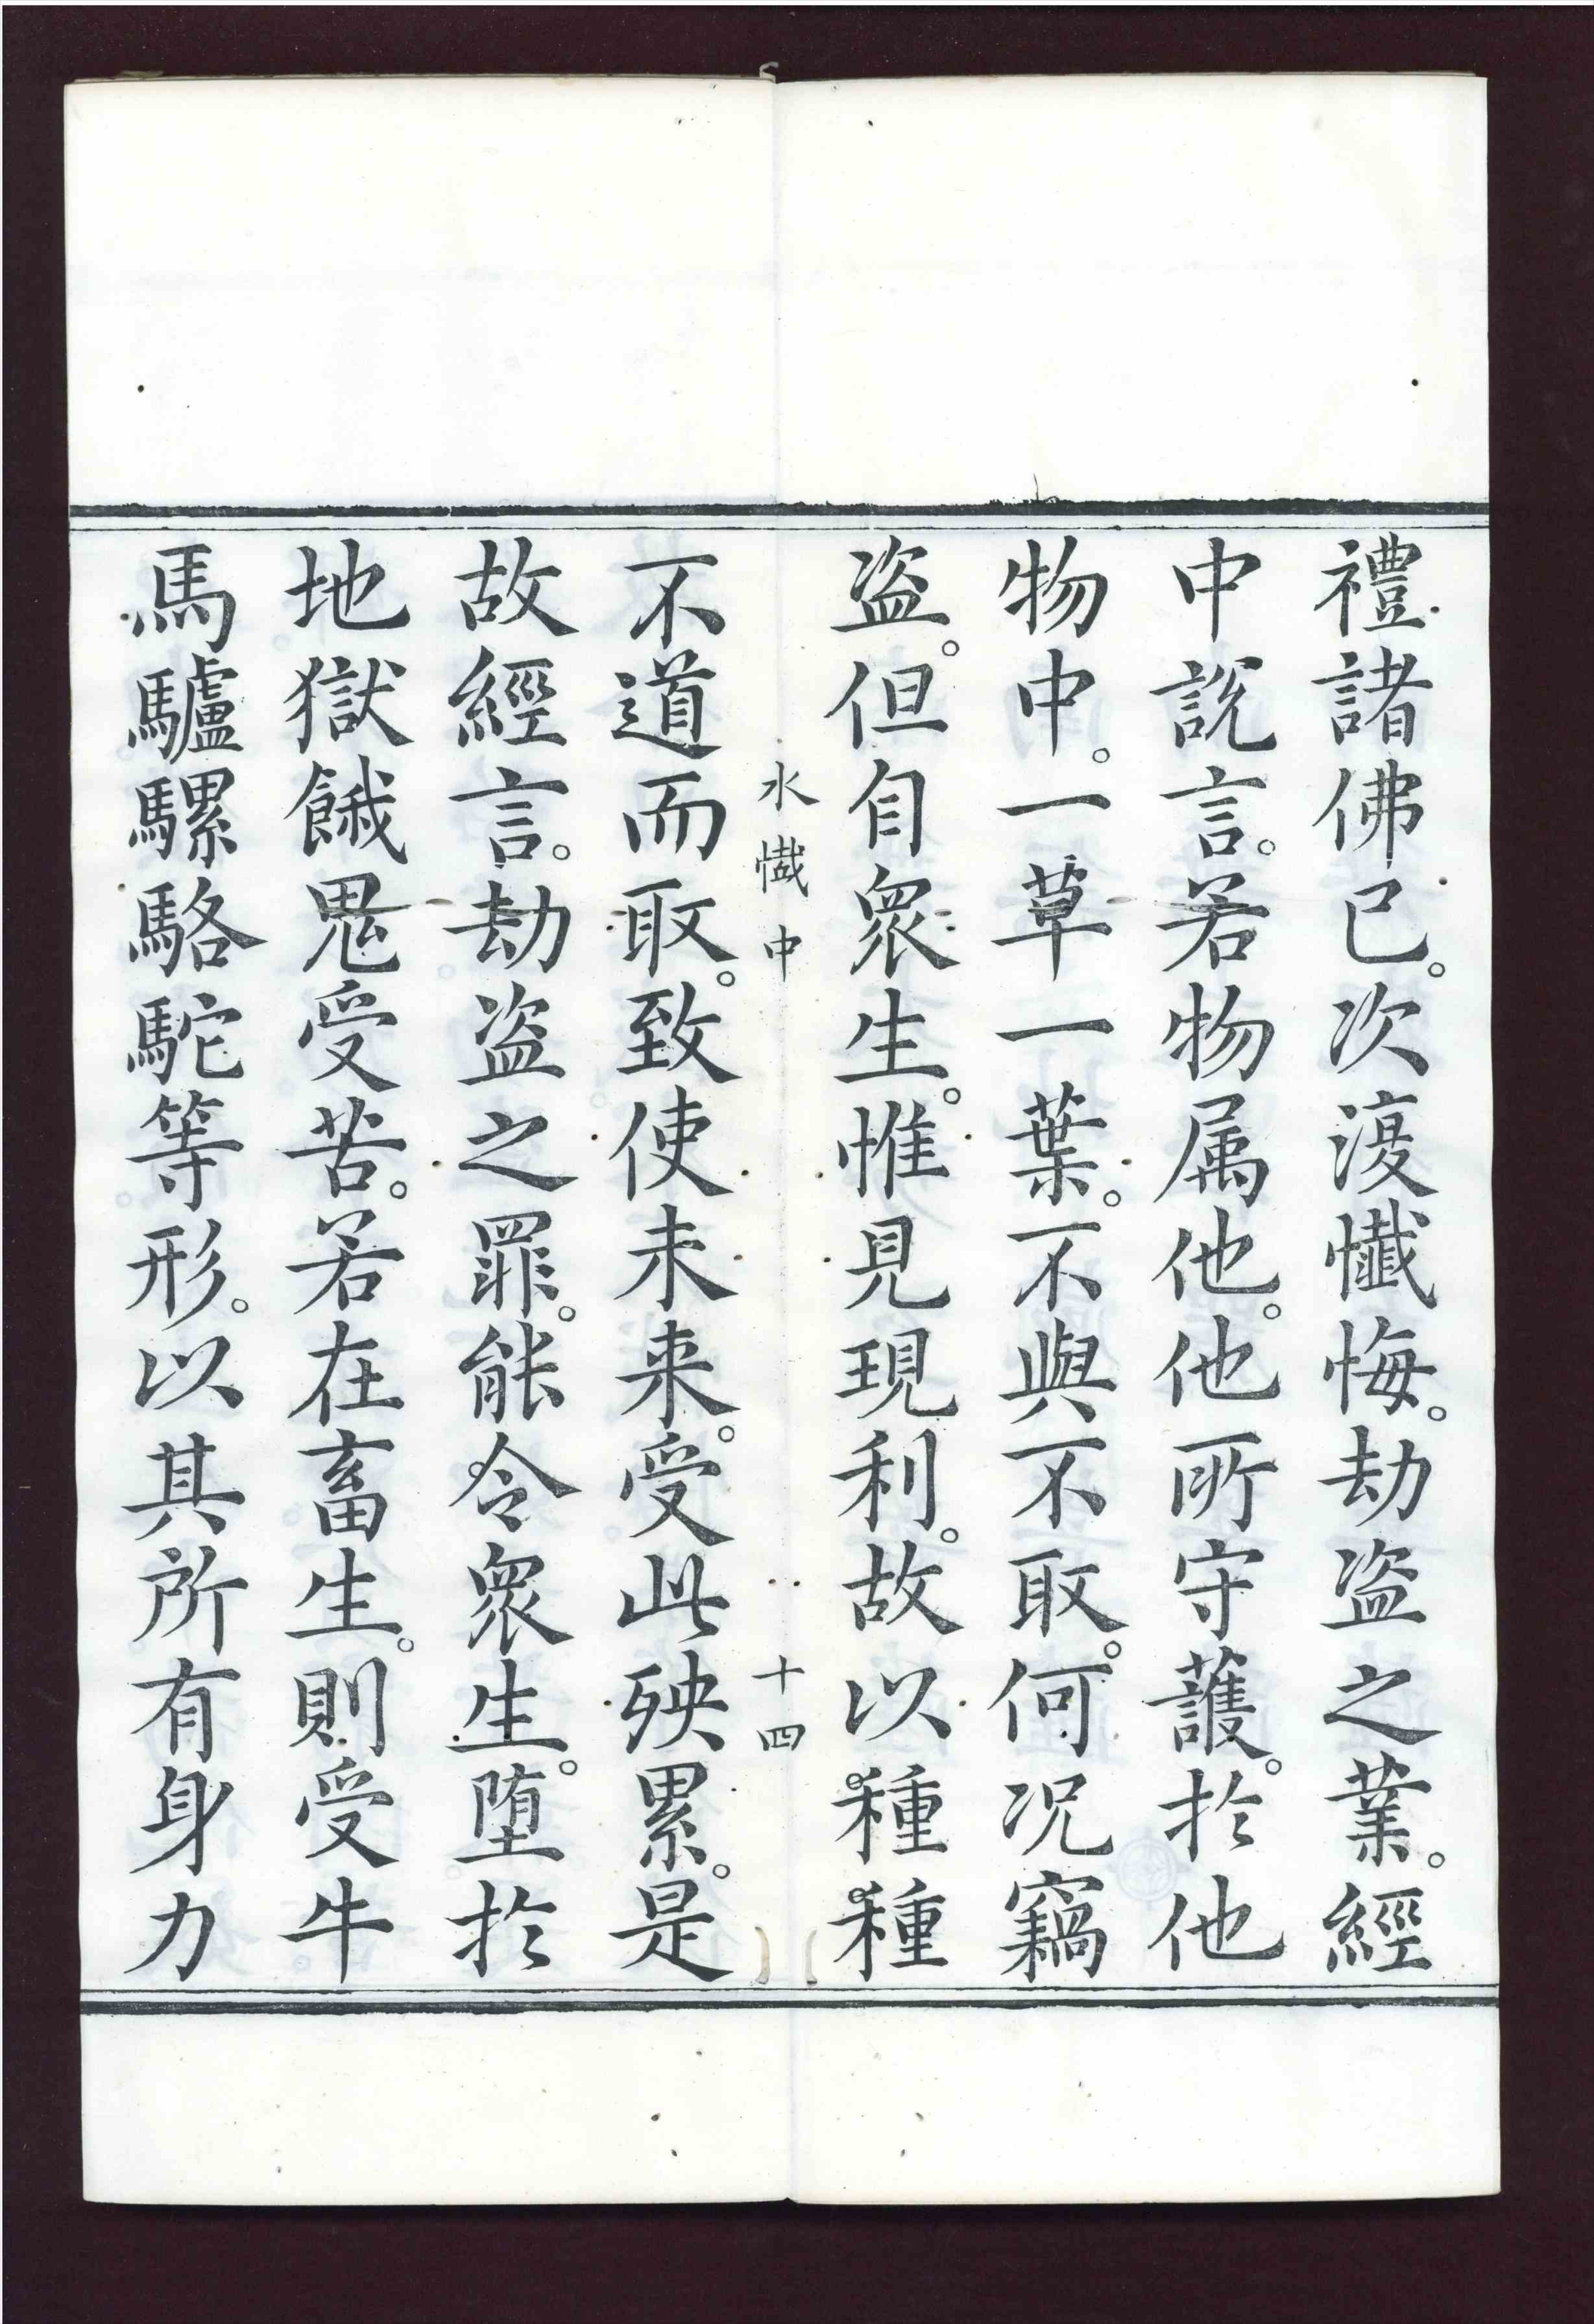 禮諸佛已。次復懺悔。劫盗之業。經
中説言。若物属他。他所守護。於他
物中。一草一葉。不與不取。何况竊
盗。但自衆生。惟見現利。故以種種
水懺中 十四
不道而取。致使未来。受此殃累。是
故經言。劫盗之罪。能令衆生。堕於
地獄餓鬼受苦。若在畜生。則受牛
馬驢騾駱駝等形。以其所有身力